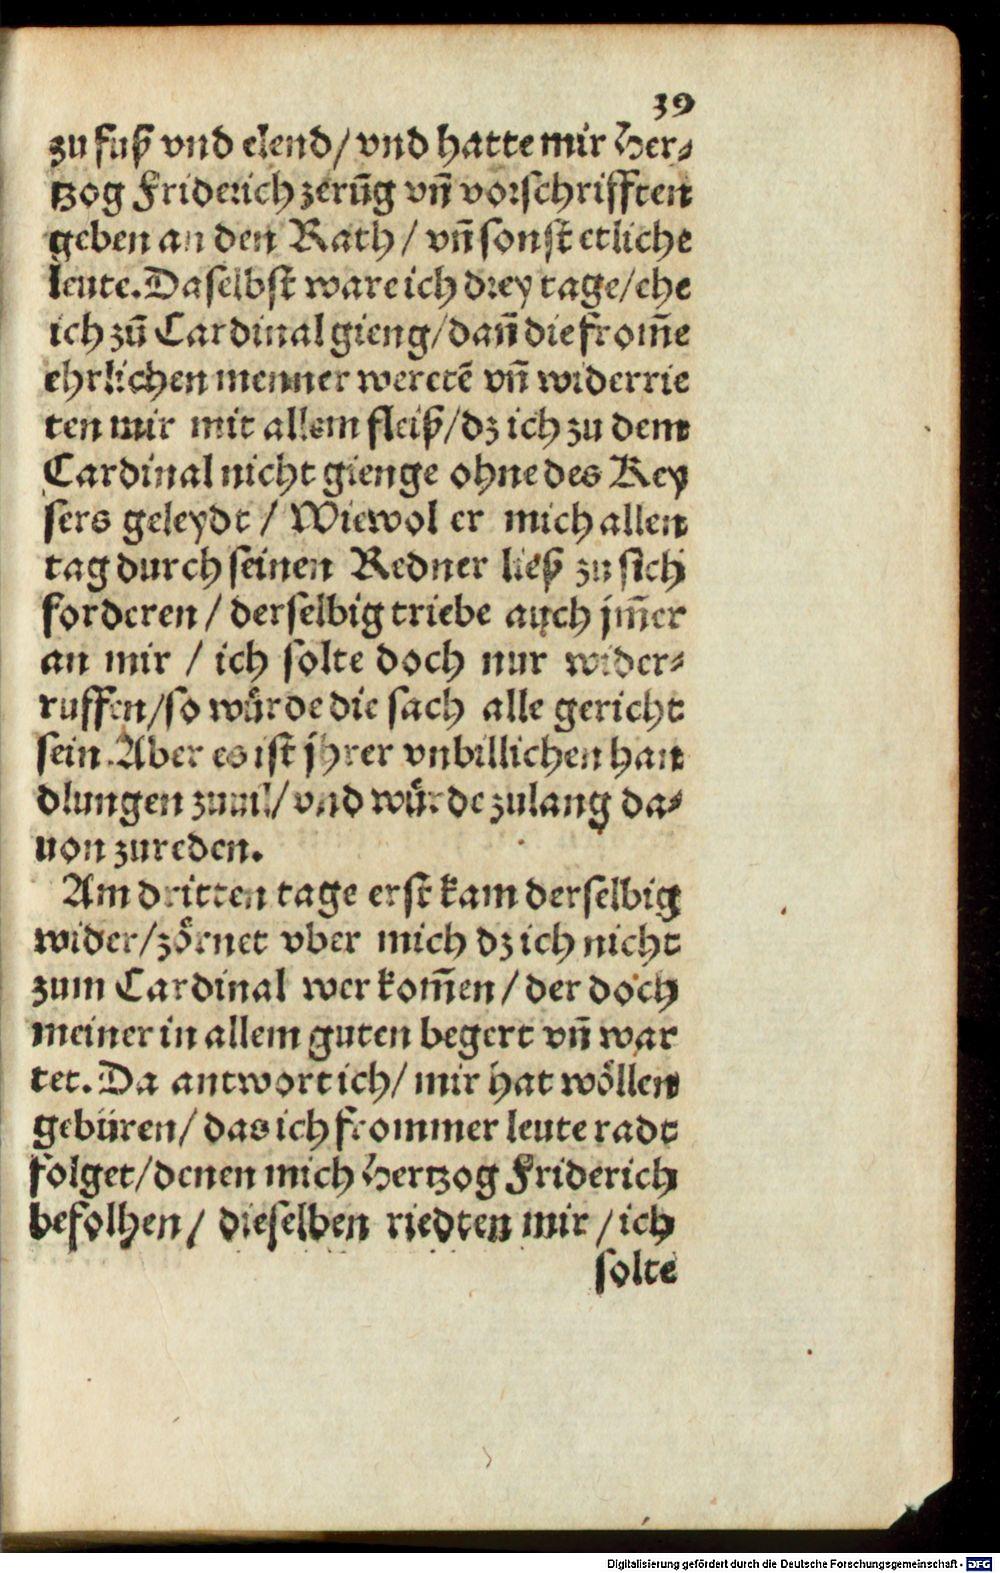 39
zu fuß vnd elend/ vnd hatte mir Her⸗
tzog Friderich zerūg vn̄ vorschrifften
geben an den Rath/ vn̄ sonst etliche
leute. Daselbst ware ich drey tage/ ehe
ich zū Cardinal gieng/ dan̄ die from̄e
ehrlichen menner weretē vn̄ widerrie
ten mir mit allem fleiß/ dz ich zu dem
Cardinal nicht gienge ohne des Key
sers geleydt / Wiewol er mich allen
tag durch seinen Redner ließ zu sich
forderen / derselbig triebe auch jm̄er
an mir / ich solte doch nur wider⸗
ruffen/ so wuͤrde die sach alle gericht
sein. Aber es ist jhrer vnbillichen han
dlungen zuuil/ vnd wuͤrde zulang da⸗
uon zureden.
Am dritten tage erst kam derselbig
wider/ zoͤrnet vber mich dz ich nicht
zum Cardinal wer kom̄en / der doch
meiner in allem guten begert vn̄ war
tet. Da antwort ich/ mir hat woͤllen
gebüren/ das ich frommer leute radt
folget/ denen mich Hertzog Friderich
befolhen/ dieselben riedten mir / ich
solte
Digitalisierung gefördert durch die Deutsche Forschungsgemeinschaft - DFG